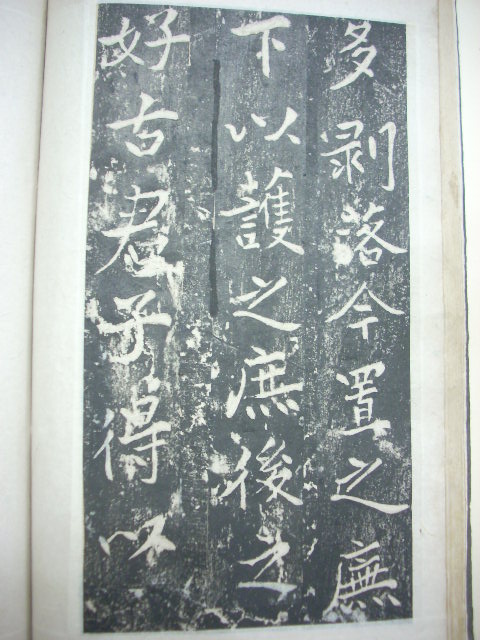 多剥落今置之廡
下以護之庶後之
好古君子得以